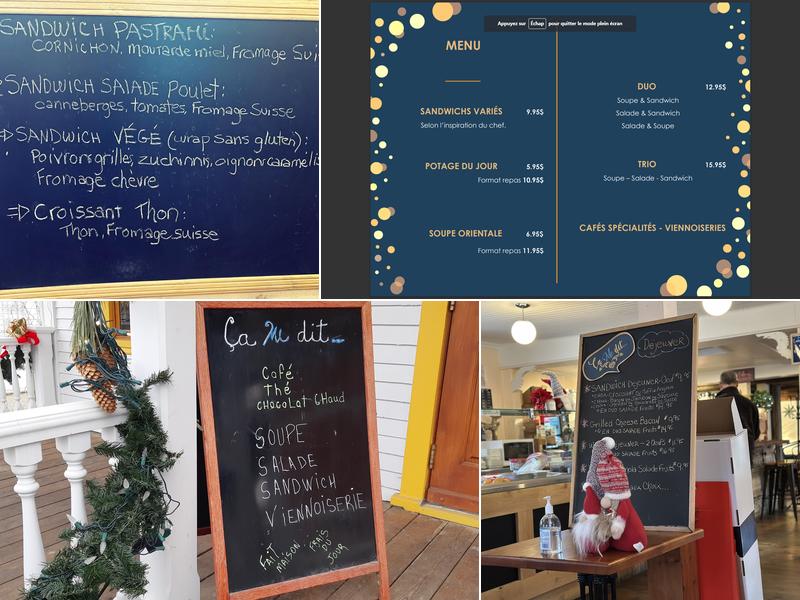 SANDWICH PASTRAMI:
CORNICHON, moutarde miel, Fromage Sui
SANDWICH SALADE Poulet:
canneberges, tomates, Fromage Suisse
⇒ SANDWICH VÉGÉ (wrap sans gluten):
Poivrons grillés, zuchinnis, oignon caramélis
Fromage chèvre
⇒ Croissant Thon:
Thon, Fromage suisse
Appuyez sur Échap pour quitter le mode plein écran
MENU
SANDWICHS VARIÉS 9.95$
Selon l'inspiration du chef.
POTAGE DU JOUR 5.95$
Format repas 10.95$
SOUPE ORIENTALE 6.95$
Format repas 11.95$
DUO 12.95$
Soupe & Sandwich
Salade & Sandwich
Salade & Soupe
TRIO 15.95$
Soupe – Salade - Sandwich
CAFÉS SPÉCIALITÉS - VIENNOISERIES
Ça M dit...
Café
thé
CHOCOLAT CHaud
SOUPE
SALADE
SANDWICH
VIENNOISERIE
FAIT MAISON
FRAIS DU JOUR
Ça M dit
Déjeuner
SANDWICH Déjeuner-Oeuf
Grilled Cheese Bacon
EN DUO SALADE Fruits
Déjeuner - 2 Oeufs
SALADE Fruits
Salade Fruits
Choix...